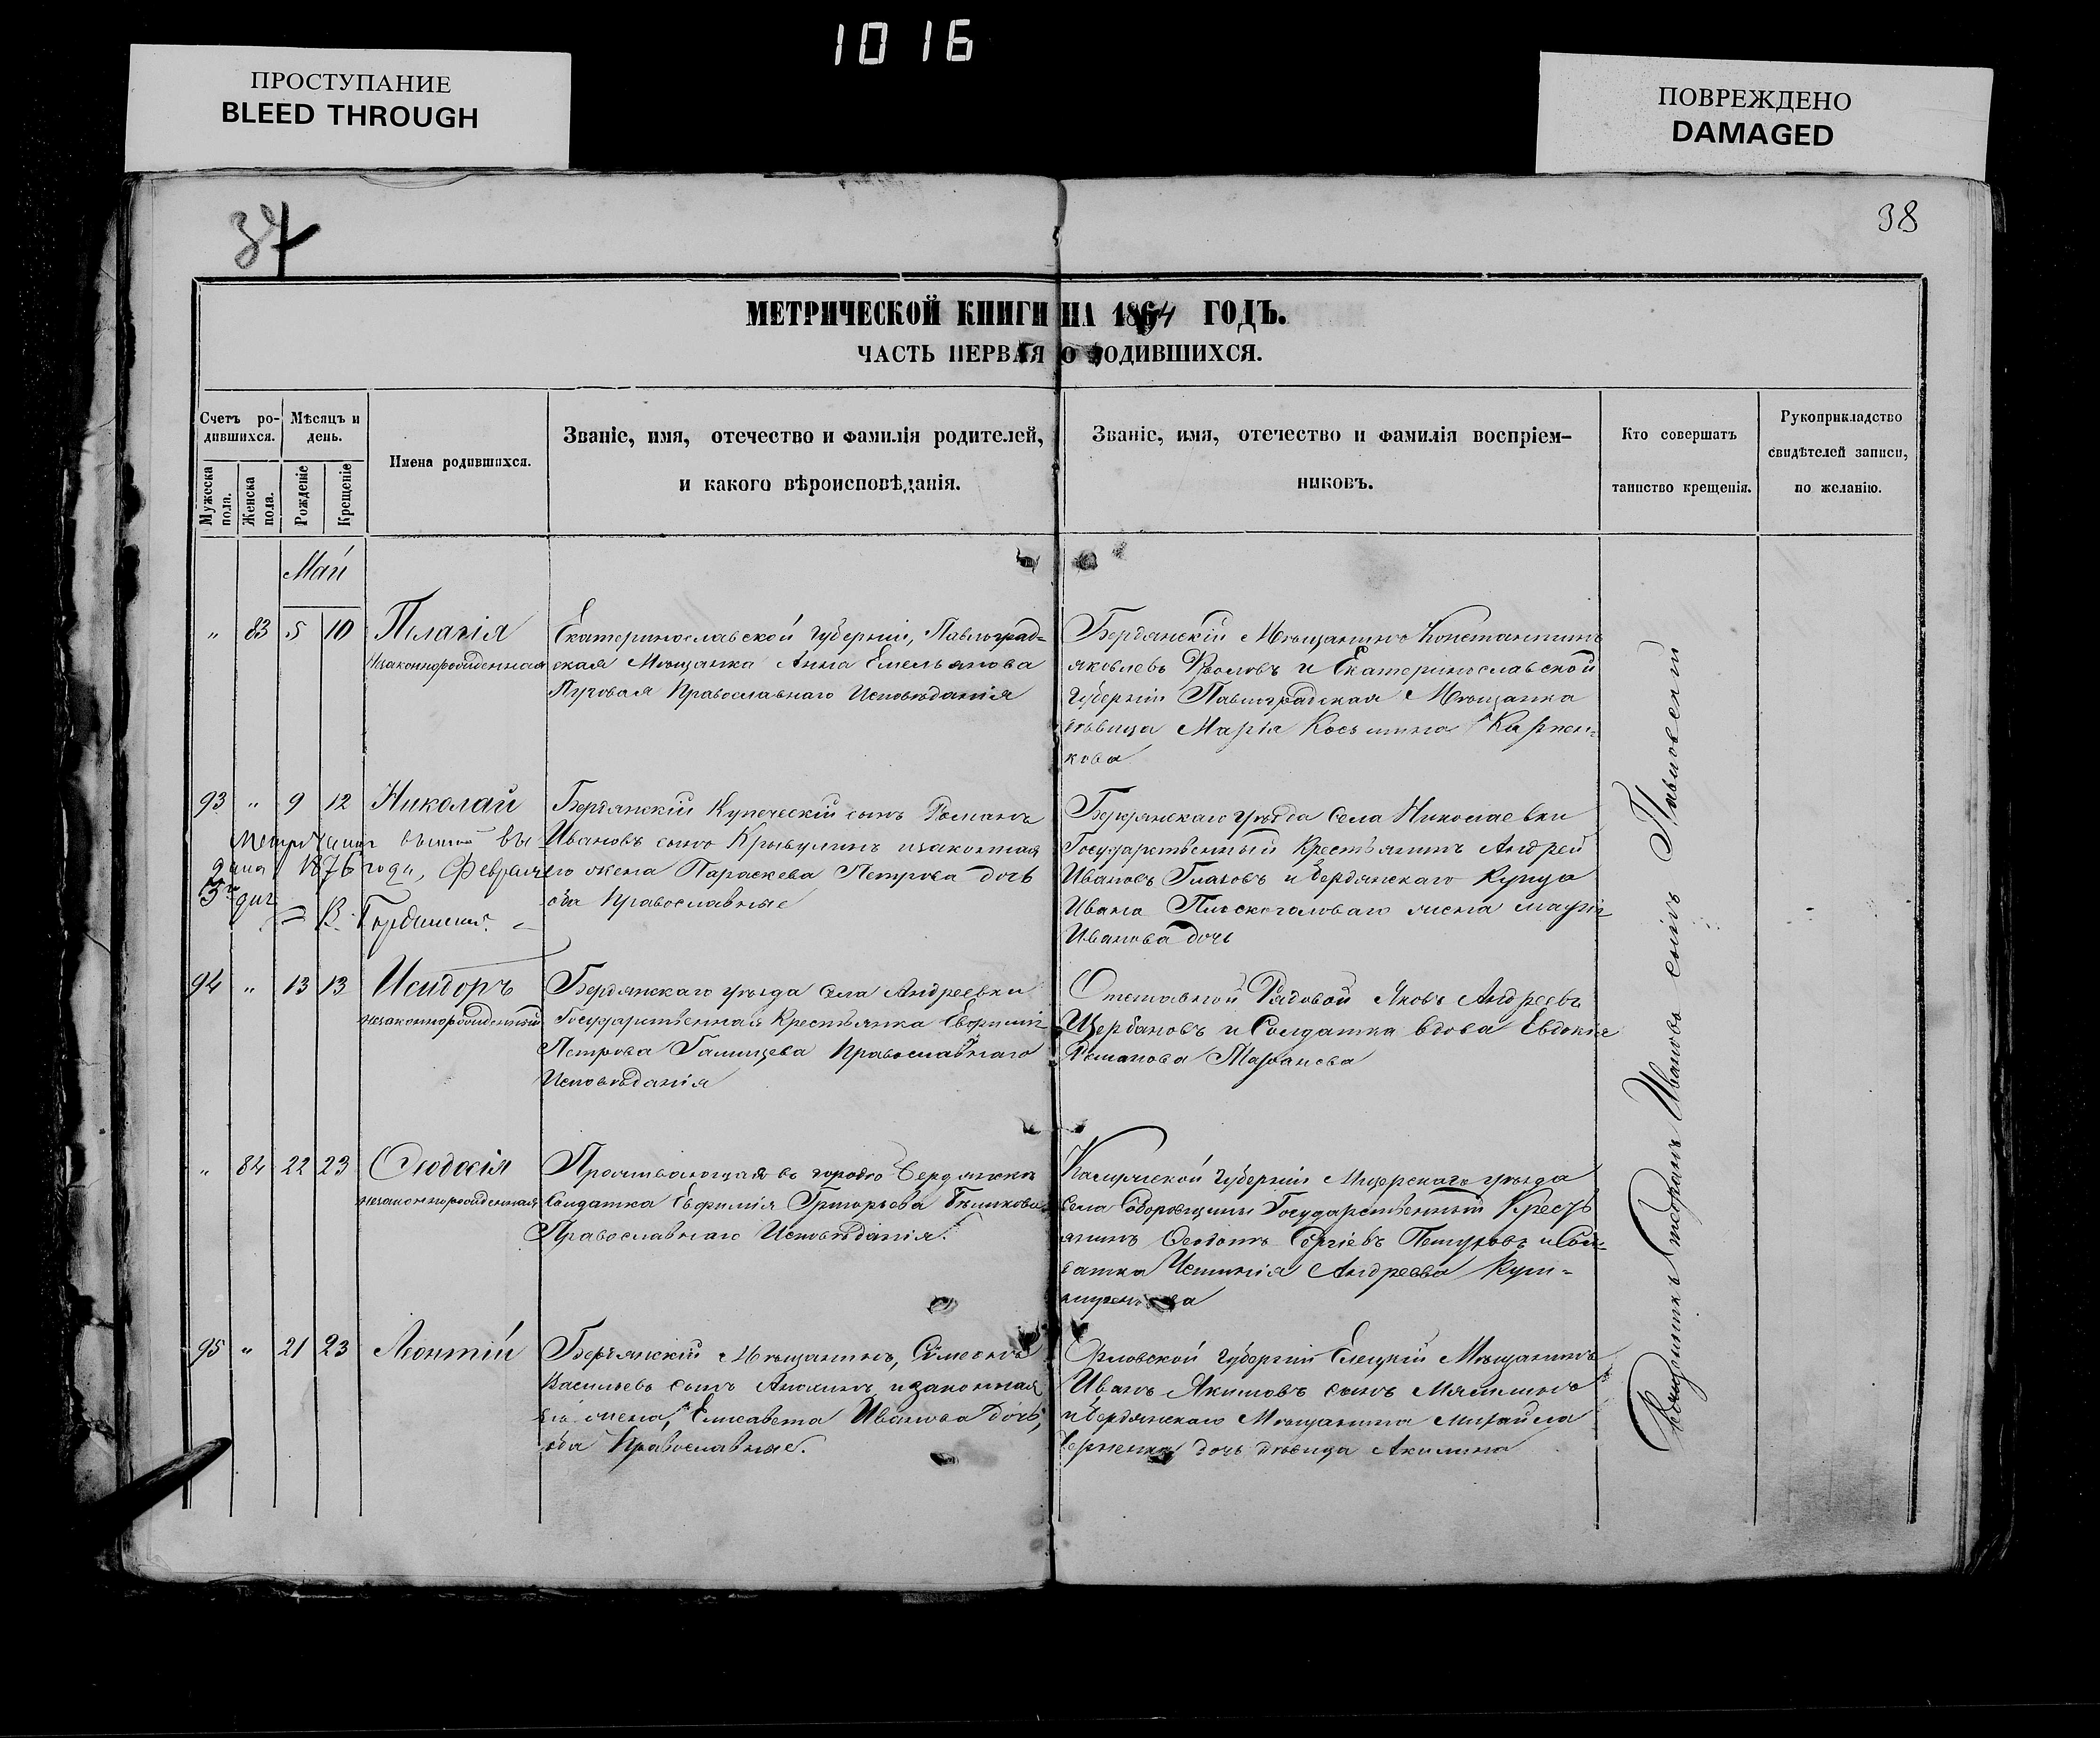 1016
ПРОСТУПАНИЕ
BLEED THROUGH
ПОВРЕЖДЕНО
DAMAGED
37
38
МЕТРИЧЕСКОЙ КНИГИ НА 1864 ГОДЪ.
ЧАСТЬ ПЕРВАЯ О РОДИВШИХСЯ.
Счетъ ро-
дившихся.
Мужеска
пола.
Женска
пола.
Мѣсяцъ и
день.
Рожденіе
Крещеніе
Имена родившихся.
Званіе, имя, отечество и фамилія родителей,
и какого вѣроисповѣданія.
Званіе, имя, отечество и фамилія воспріем-
никовъ.
Кто совершатъ
таинство крещенія.
Рукоприкладство
свидѣтелей записи,
по желанію.
Май
„ 83 5 10 Пелагія
Незаконнорожденная
Екатеринославской Губерніи, Павлоград=
ская Мѣщанка Анна Емельянова
Пуговая Православнаго Исповѣданія
Бердянскій Мѣщанинъ Константинъ
Яковлевъ и Екатеринославской
Губерніи Павлоградская Мѣщанка
дѣвица Марія Косьмина
кова
93 „ 9 12 Николай
Бердянскій Купеческій сынъ Романъ
Ивановъ сынъ Крывулинъ и законная
его жена Параскева Петрова дочь
оба Православные
вы
дана 1876 года, Февраля
3го дня
Бердянскаго уѣзда села Николаевки
Государственный Крестьянинъ Андрей
Ивановъ и Бердянскаго Купца
Ивана Плоскоголоваго жена Марія
Иванова дочь
94 „ 13 13 Исидоръ
незаконнорожденный
Бердянскаго уѣзда Села Андреевки
Государственная Крестьянка
Петрова Галицева Православнаго
Исповѣданія
Отставной Рядовой Яковъ Андреевъ
Щербаковъ и Солдатка вдова Евдокія
Романова
„ 84 22 23 Ѳеодосія
незаконнорожденная
Проживающая въ городѣ Бердянскѣ
Солдатка Евфимія Григорьева Бѣликова
Православнаго Исповѣданія.
Калужской Губерніи Мещовскаго уѣзда
Села Государственный Кресть
янинъ Сергіевъ Петуховъ и Сол=
датка Андреева
95 „ 21 23 Леонтій
Бердянскій Мѣщанинъ, Симеонъ
Васильевъ сынъ Анохинъ и законная
его жена, Елисавета Иванова дочь,
оба Православные.
Орловской Губерніи Елецкій Мѣщанинъ
Иванъ Якимовъ сынъ
и Бердянскаго Мѣщанина Михаила
дочь дѣвица Акилина
Священникъ Стефанъ Ивановъ сынъ Павловскій